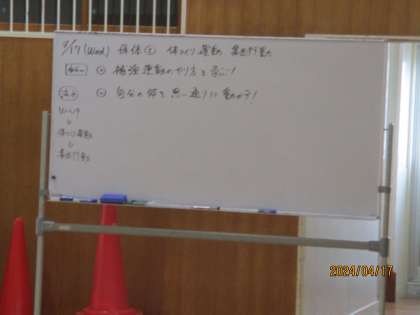 4/17(Wed) 保体① 体つくり運動 集団行動
◎ 補強運動のやり方を学ぶ！
◎ 自分の体を思い通りに動かす！
↓
体つくり運動
↓
集団行動
2024/04/17